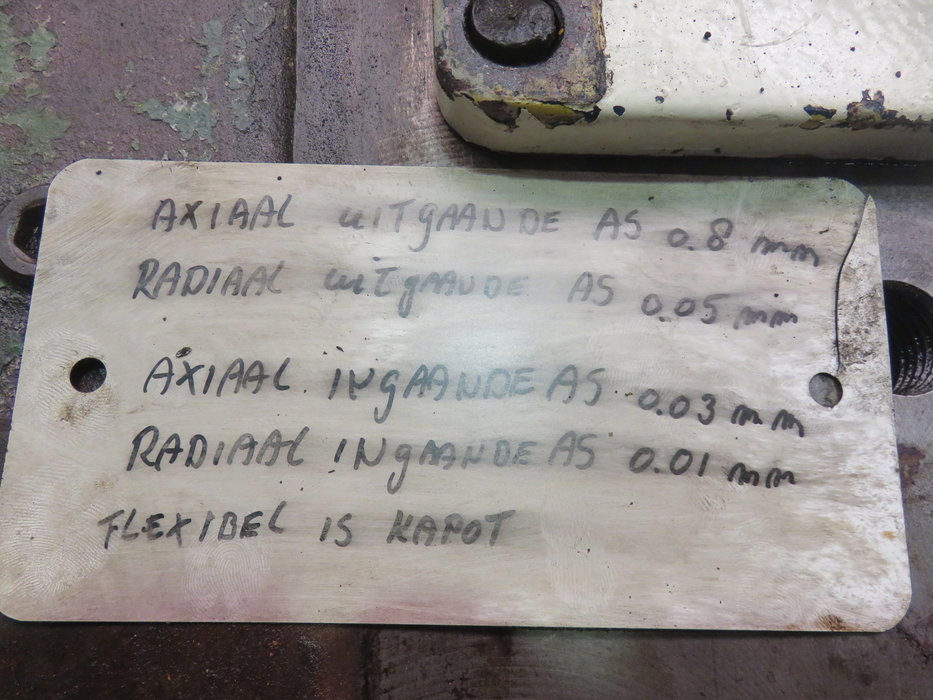 AXIAAL UITGAANDE AS 0.8 mm
RADIAAL UITGAANDE AS 0.05 mm
AXIAAL INGAANDE AS 0.03 mm
RADIAAL INGAANDE AS 0.01 mm
FLEXIBEL IS KAPOT